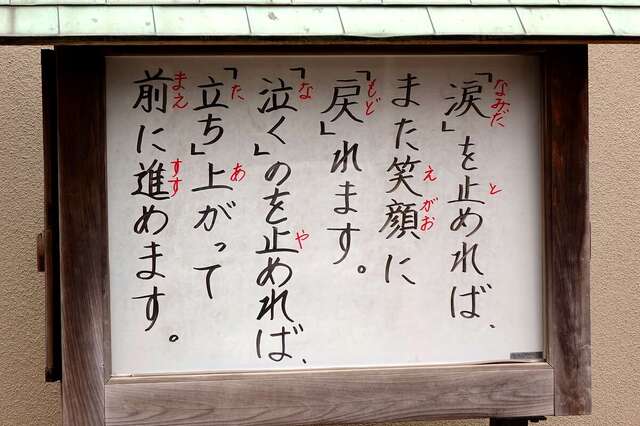 「涙」を止めれば、
また笑顔に
「戻」れます。
「泣く」のを止めれば、
「立ち」上がって
前に進めます。
なみだ
と
えがお
もど
な
や
た
あ
まえ
すす